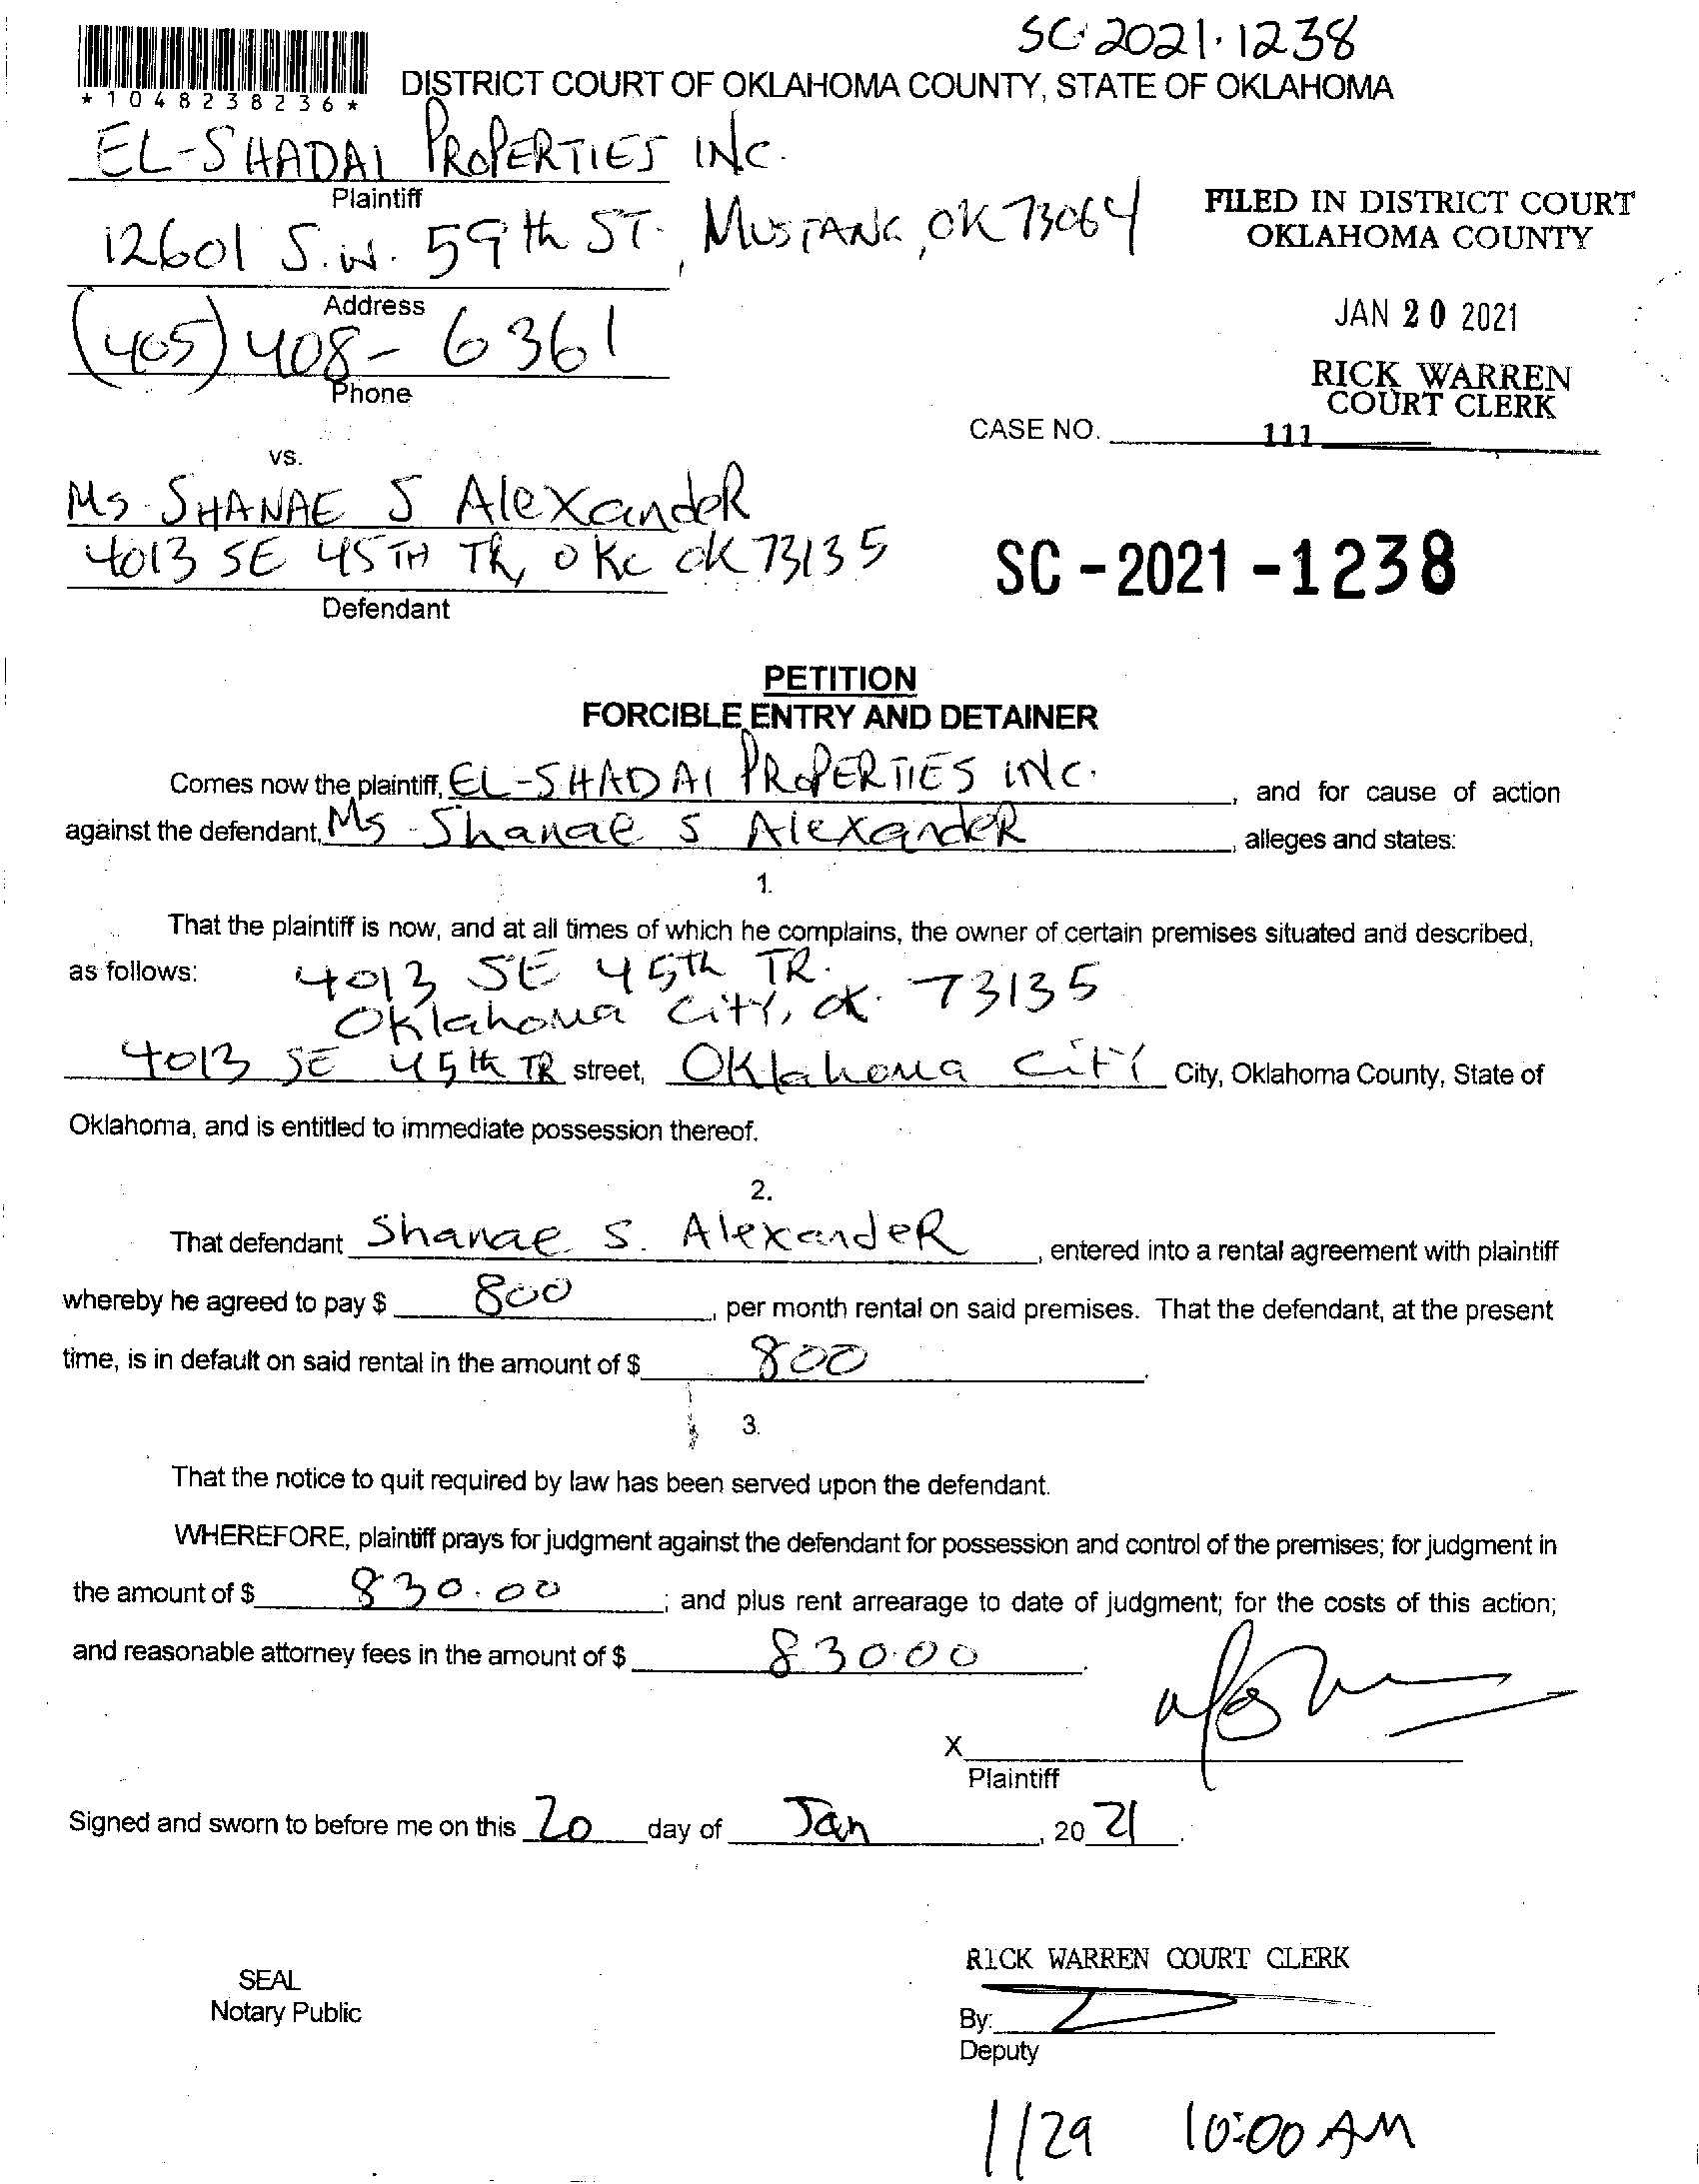 SC-2021-1238
*1048238236*
DISTRICT COURT OF OKLAHOMA COUNTY, STATE OF OKLAHOMA
EL-SHADAI PROPERTIES INC.
Plaintiff
12601 S.W. 59th ST., MUSTANG, OK 73064
FILED IN DISTRICT COURT
OKLAHOMA COUNTY
Address
JAN 20 2021
(405) 408-6361
Phone
RICK WARREN
COURT CLERK
CASE NO. 111
vs.
Ms. SHANAE S AlexandeR
4013 SE 45TH TR, OKC OK 73135
Defendant
SC-2021-1238
PETITION
FORCIBLE ENTRY AND DETAINER
Comes now the plaintiff, EL-SHADAI PROPERTIES INC., and for cause of action
against the defendant, Ms. Shanae S AlexandeR, alleges and states:
1.
That the plaintiff is now, and at all times of which he complains, the owner of certain premises situated and described,
as follows: 4013 SE 45th TR.
Oklahoma City, OK. 73135
4013 SE 45th TR street, Oklahoma City City, Oklahoma County, State of
Oklahoma, and is entitled to immediate possession thereof.
2.
That defendant Shanae S. AlexandeR, entered into a rental agreement with plaintiff
whereby he agreed to pay $ 800, per month rental on said premises. That the defendant, at the present
time, is in default on said rental in the amount of $ 800.
3.
That the notice to quit required by law has been served upon the defendant.
WHEREFORE, plaintiff prays for judgment against the defendant for possession and control of the premises; for judgment in
the amount of $ 830.00; and plus rent arrearage to date of judgment; for the costs of this action;
and reasonable attorney fees in the amount of $ 830.00.
X
Plaintiff
Signed and sworn to before me on this 20 day of Jan, 20 21.
RICK WARREN COURT CLERK
SEAL
Notary Public
By:
Deputy
1/29 10:00 AM